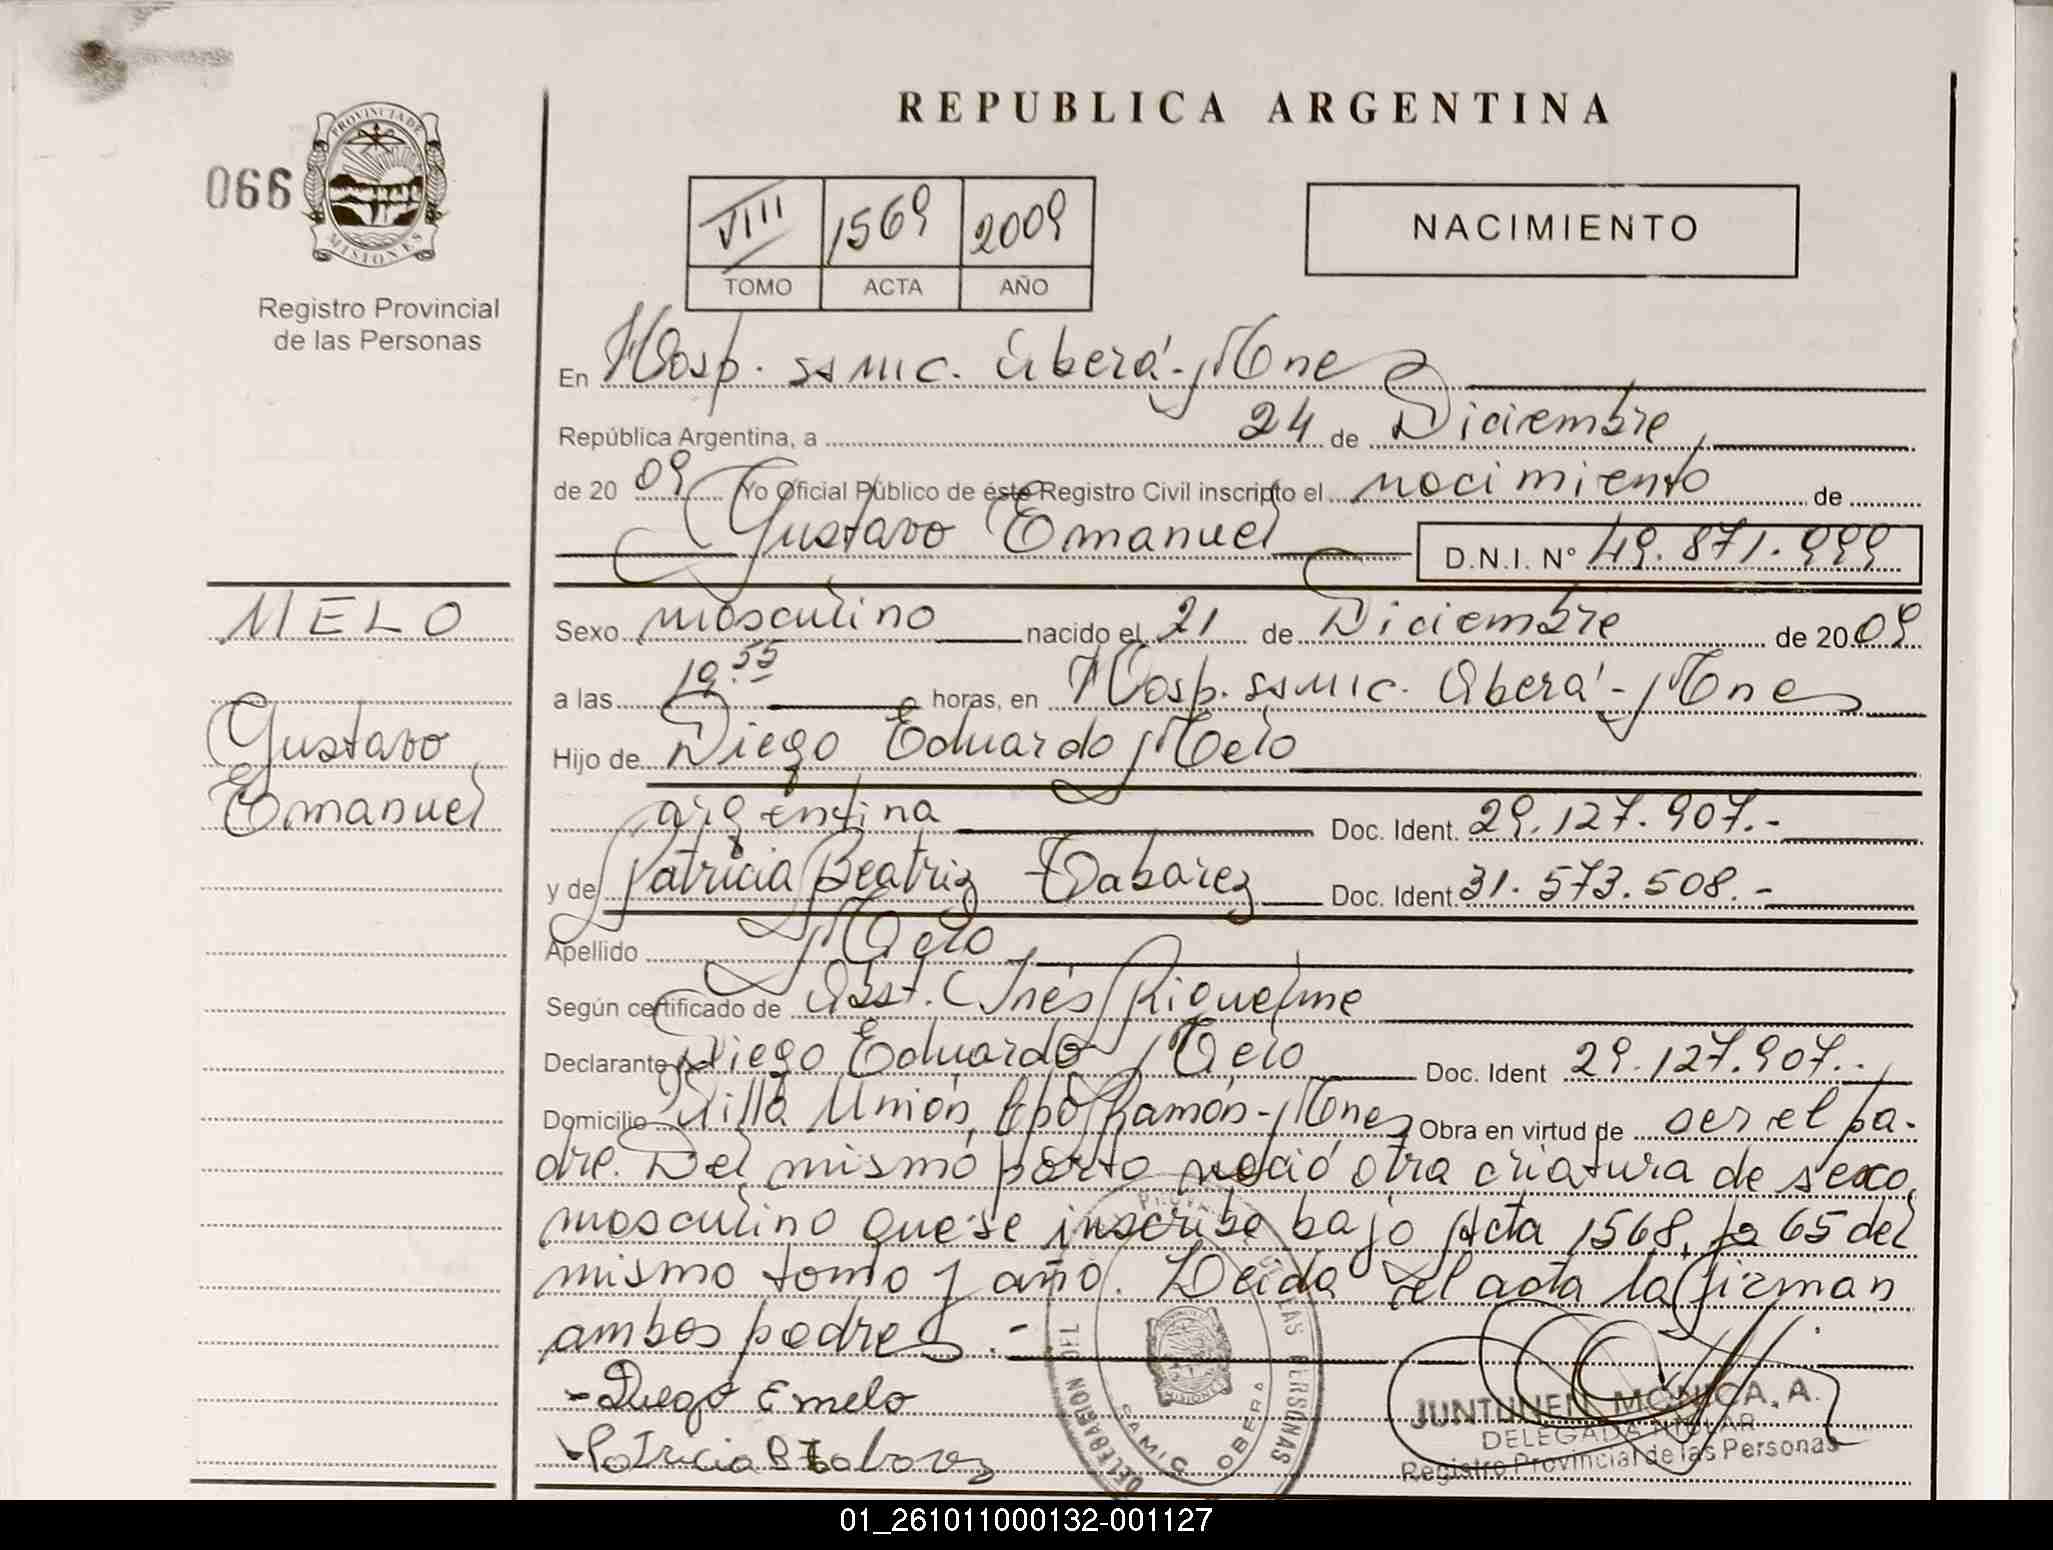 REPUBLICA ARGENTINA
066
PROVINCIA DE
MISIONES
Registro Provincial
de las Personas
VIII 1569 2009
TOMO ACTA AÑO
NACIMIENTO
En Hosp. SAMIC. Oberá-Mnes
República Argentina, a 24 de Diciembre,
de 2009 Yo Oficial Público de éste Registro Civil inscripto el nacimiento de
Gustavo Emanuel D.N.I. Nº 49.871.999
MELO
Gustavo
Emanuel
Sexo masculino nacido el 21 de Diciembre de 2009
a las 19.55 horas, en Hosp. SAMIC. Oberá-Mnes
Hijo de Diego Eduardo Melo
argentina Doc. Ident. 29.127.907.-
y de Patricia Beatriz Tabarez Doc. Ident. 31.573.508.-
Apellido Melo
Según certificado de Obst. Inés Riquelme
Declarante Diego Eduardo Melo Doc. Ident 29.127.907.-
Domicilio Villa Unión, Cpo Ramón-Mnes Obra en virtud de ser el pa-
dre. Del mismo parto nació otra criatura de sexo
masculino que se inscribe bajo Acta 1568, fº 65 del
mismo tomo y año. Leida el acta la firman
ambos padres.-
-Diego E melo
-Patricia B Tabarez
DELEGACION DEL LAS PERSONAS
SAMIC OBERA
MISIONES
JUNTUNEN MONICA, A.
DELEGADA TITULAR
Registro Provincial de las Personas
01_261011000132-001127